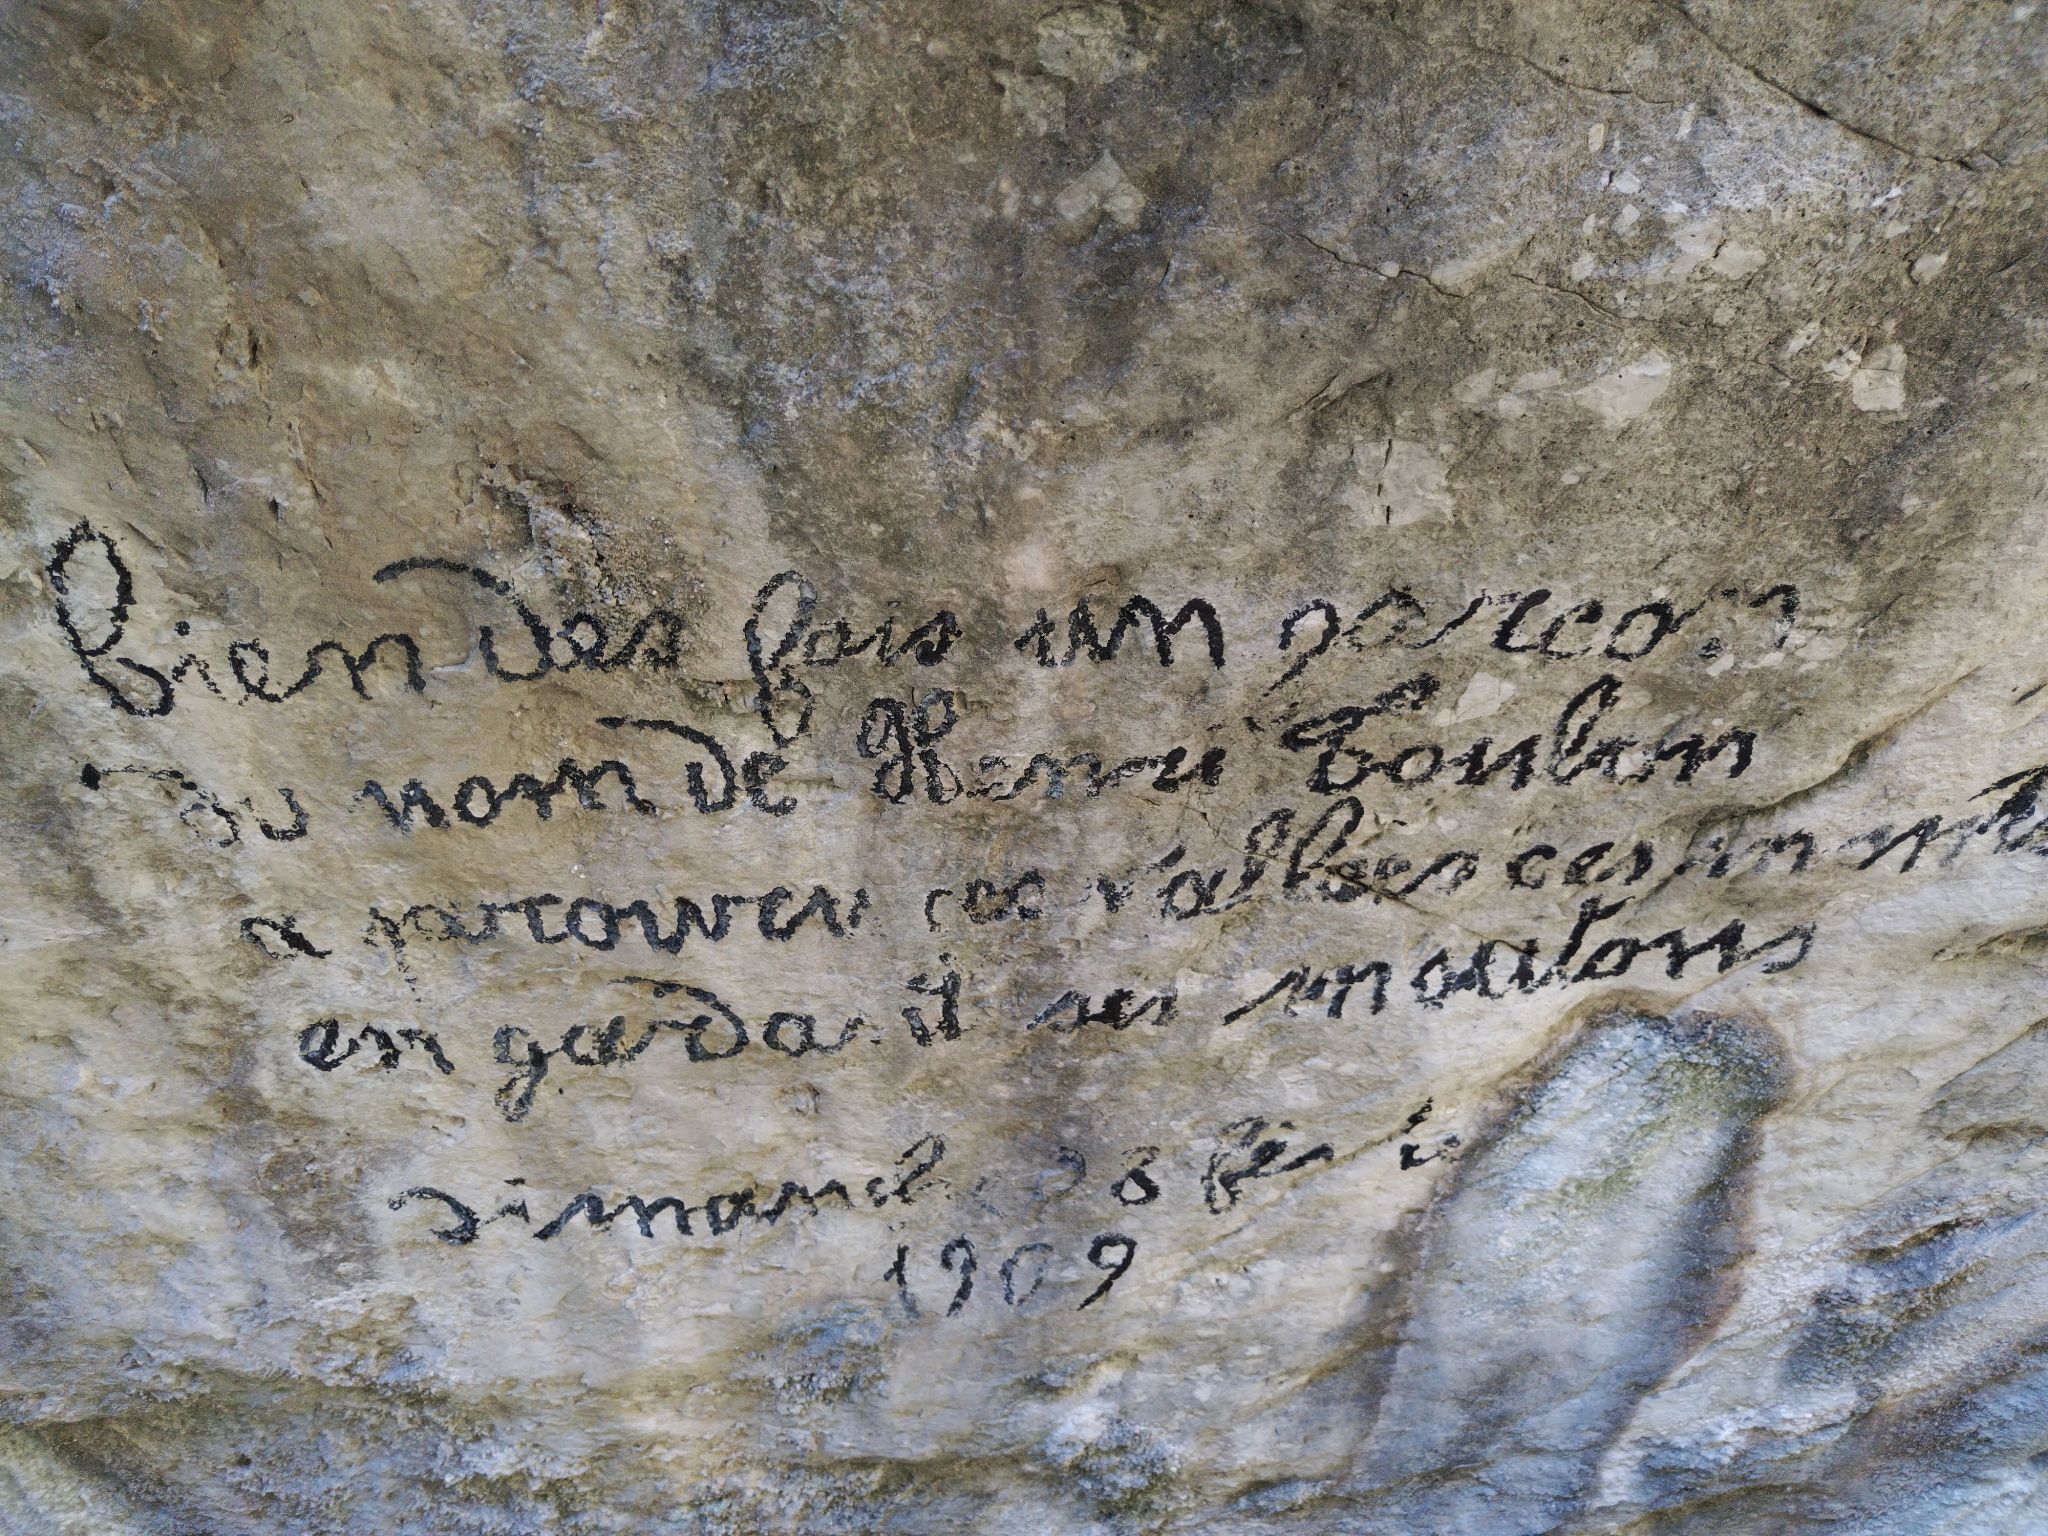 bien des fois un garcon
du nom de Henri Toulon
a parcouru ces vallées ces monts
en gardant ses moutons
dimanche 28 fév
1909